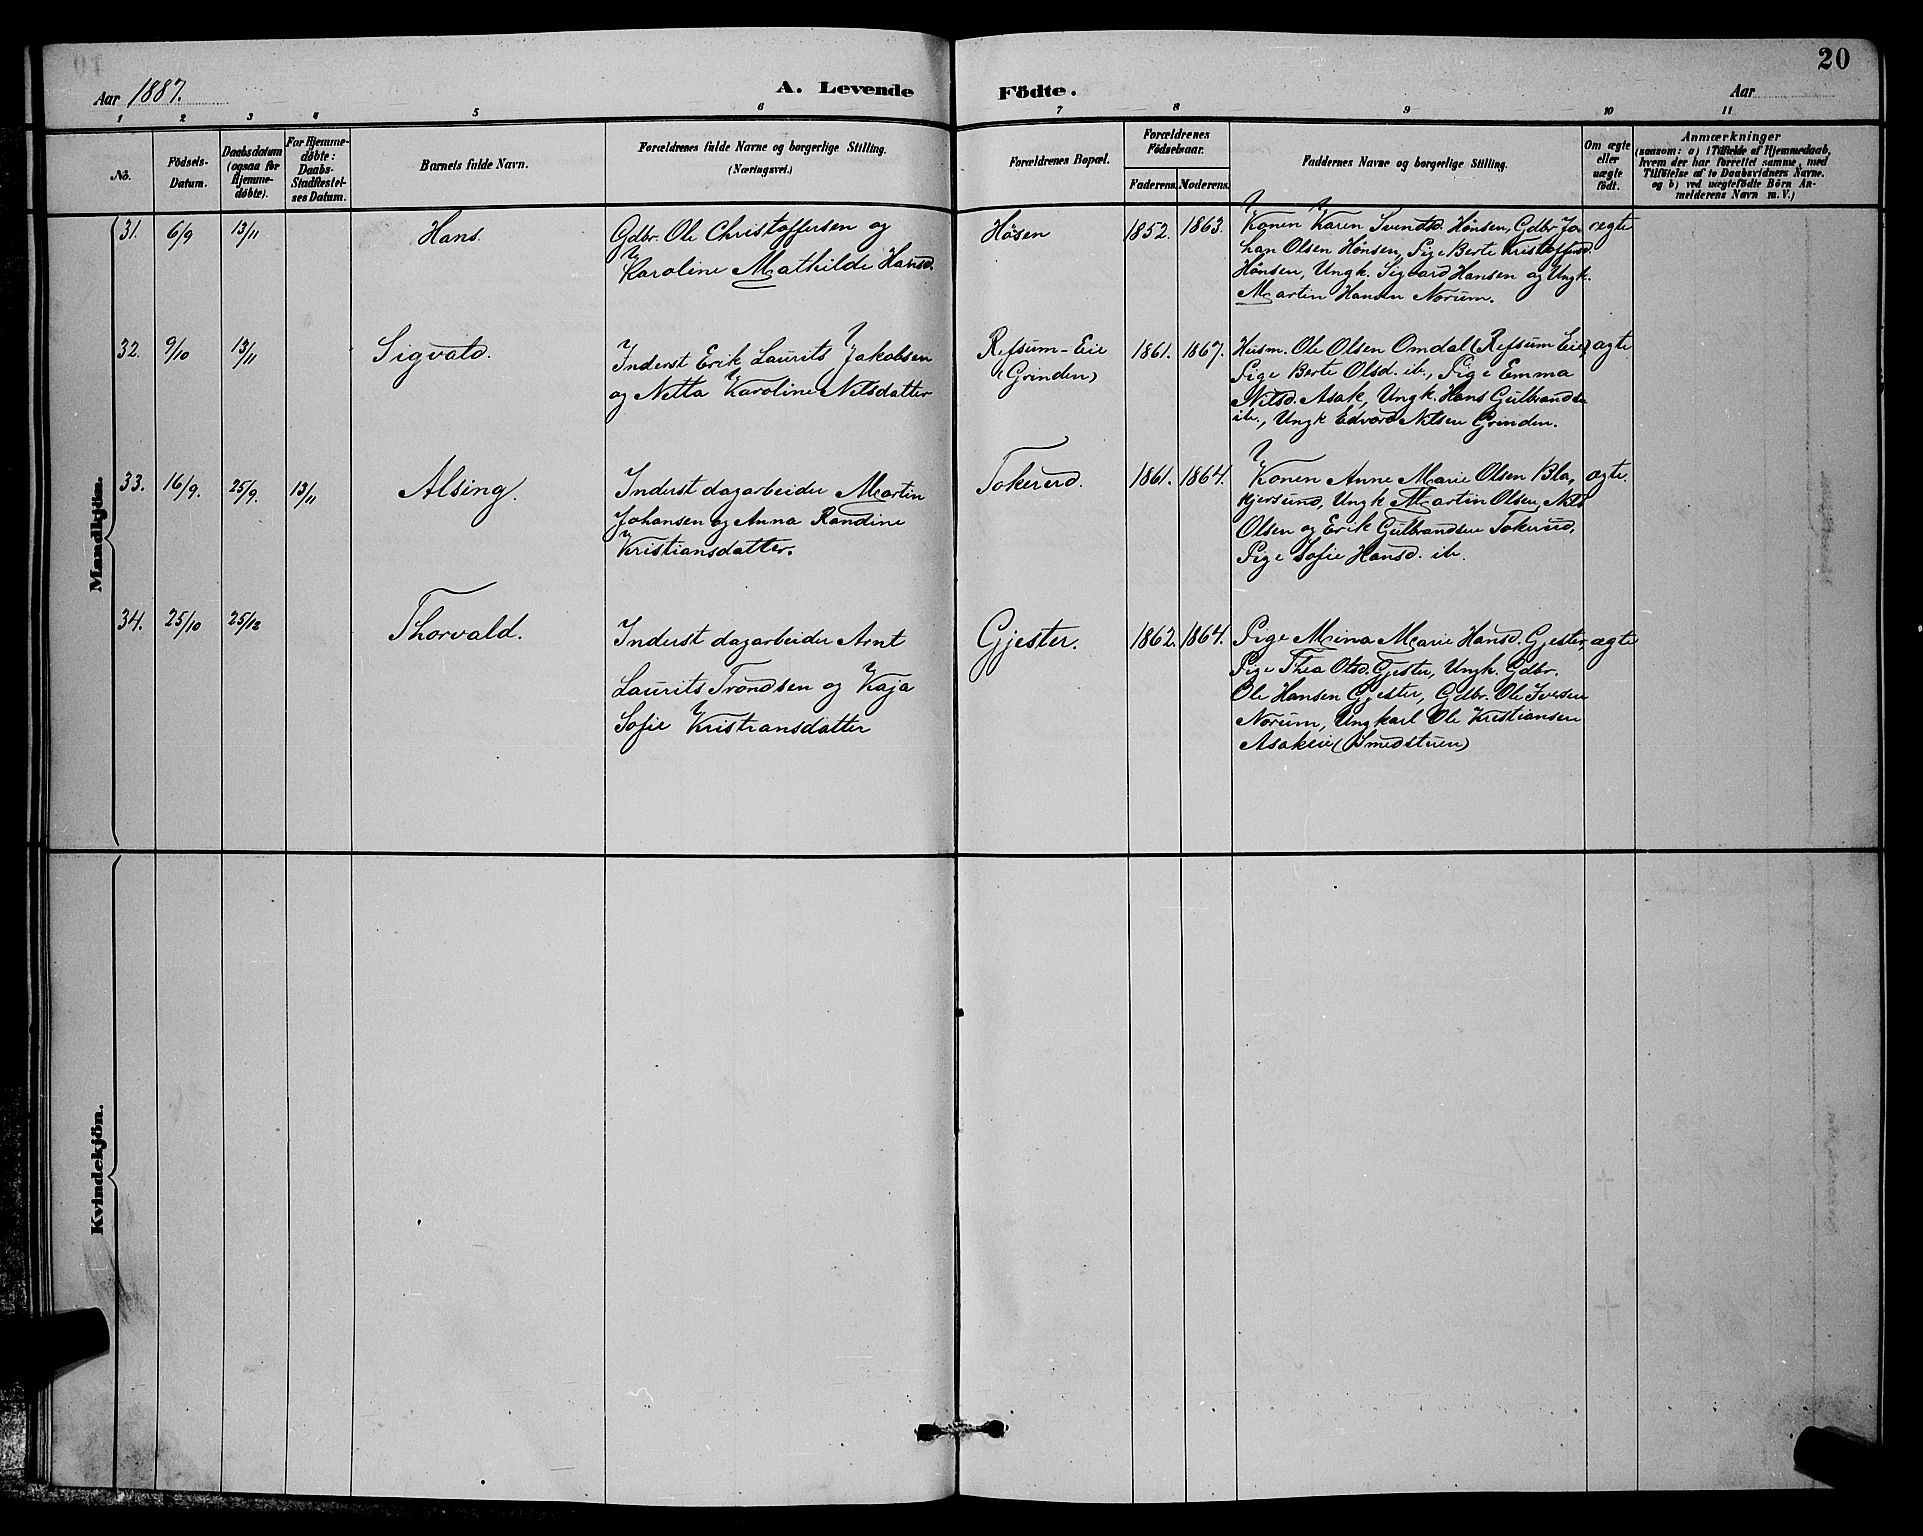 20
Aar 1887.
A. Levende Födte.
Aar
1 2 3 4 5 6 7 8 9 10 11
No.
Födsels-
Datum.
Daabsdatum
(ogsaa for
Hjemme-
döbte).
For Hjemme-
döbte:
Daabs-
Stadfæstel-
ses Datum.
Barnets fulde Navn.
Forældrenes fulde Navne og borgerlige Stilling.
(Næringsvei.)
Forældrenes Bopæl.
Forældrenes
Födselsaar.
Faderens. Moderens.
Faddernes Navne og borgerlige Stilling.
Om ægte
eller
uægte
födt.
Anmærkninger
(saasom: a) i Tilfælde af Hjemmedaab,
hvem der har forrettet samme, med
Tilföielse af to Daabsvidners Navne.
og b) ved uægtefödte Börn An-
melderens Navn m.V.)
Mandkjön.
31. 6/9 13/11
Hans.
Gdbr. Ole Christoffersen og
Karoline Mathilde Hansd.
Høsen
1852. 1863.
Konen Karen Svendsd. Hönsen, Gdbr. Jo-
han Olsen Hönsen, Pige Berte Kristoffersd.
Hönsen, Ungk. Sigvard Hansen og Ungk.
Martin Hansen Norum.
ægte
32. 9/10 13/11
Sigvald.
Inderst Erik Laurits Jakobsen
og Netta Karoline Nilsdatter
Refsum-Eie
(Grinden)
1861. 1867.
Husm. Ole Olsen Omdal (Refsum Eie)
Pige Berte Olsd. ib., Pige Emma
Nilsd. Asak, Ungk. Hans Gulbrandsen
ib., Ungk Edvard Nilsen Grinden.
ægte
33. 16/9. 25/9. 13/11
Alsing.
Inderst dagarbeider Martin
Johansen og Anna Randine
Kristiansdatter.
Tokerud.
1861. 1864.
Konen Anne Marie Olsen Bla-
kjersund, Ungk Martin Olsen, Nils
Olsen og Erik Gulbrandsen Tokerud,
Pige Sofie Hansd. ib.
ægte.
34. 25/10 25/12
Thorvald.
Inderst dagarbeider Arnt
Laurits Trondsen og Kaja
Sofie Kristiansdatter
Gjester.
1862. 1864.
Pige Mina Marie Hansd. Gjester,
Pige Thea Olsd. Gjester, Ungk. Gdbr.
Ole Hansen Gjester, Gdbr. Ole Iversen
Norum, Ungkarl Ole Kristiansen
Asakeie (Smedstuen)
ægte
Kvindekjön.